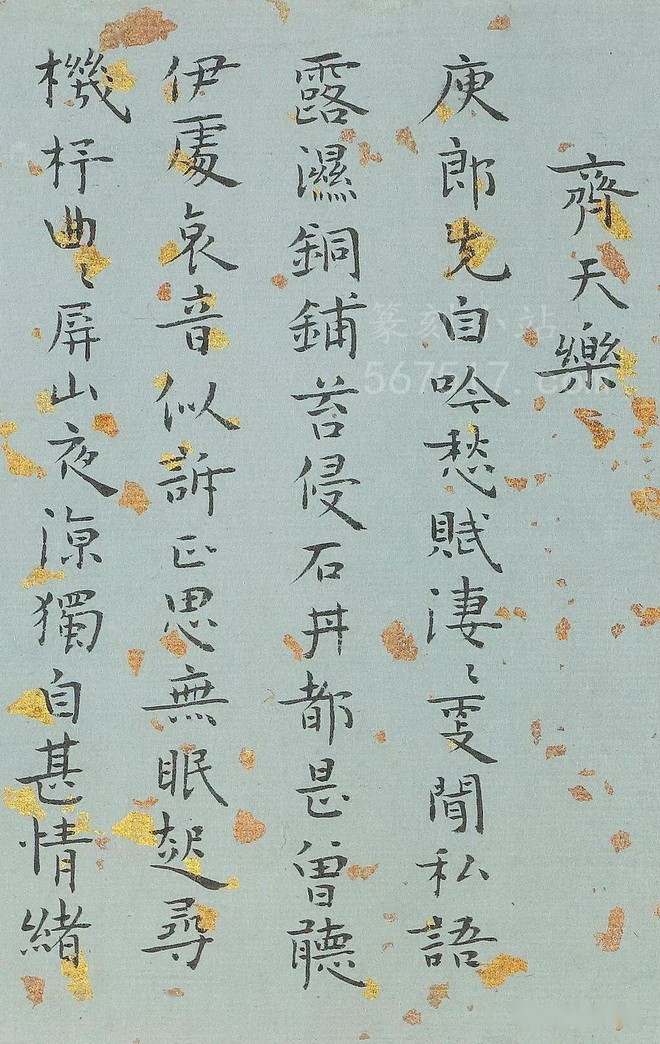 齊天樂
庾郎先自吟愁賦淒〻更聞私語
露濕銅鋪苔侵石井都是曾聽
伊處哀音似訴正思無眠起尋
機杼曲〻屏山夜涼獨自甚情緒
篆刻小站